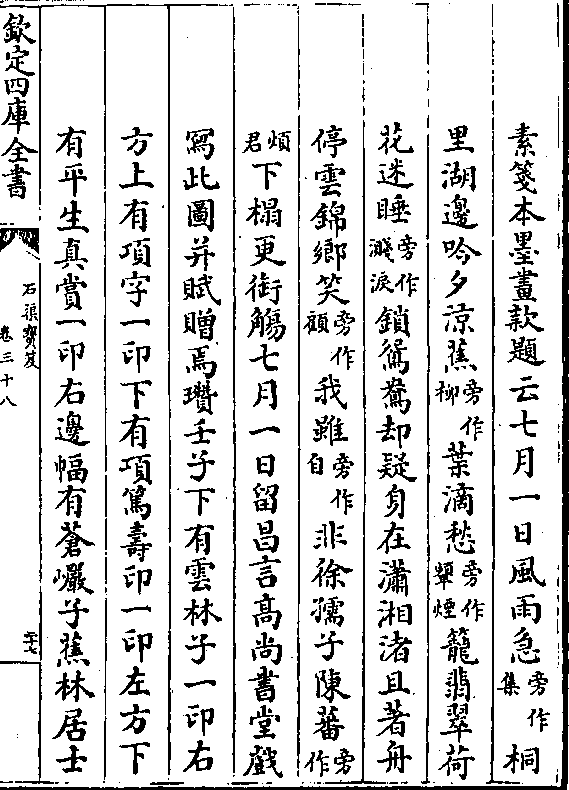 素箋本墨畫款題云七月一日風雨急旁作集桐
里湖邊吟夕涼蕉旁作柳葉滴愁旁作顰煙籠翡翠荷
花迷睡旁作濺淚鎖鴛鴦却疑身在瀟湘渚且著舟
停雲錦鄉笑旁作顧我雖旁作自非徐孺子陳蕃旁作
煩君下榻更銜觴七月一日留昌言髙尚書堂戲
寫此圖并賦贈焉瓚壬子下有雲林子一印右
方上有項字一印下有項篤壽印一印左方下
有平生真賞一印右邊幅有蒼巖子蕉林居士
欽定四庫全書
石渠寶笈
卷三十八